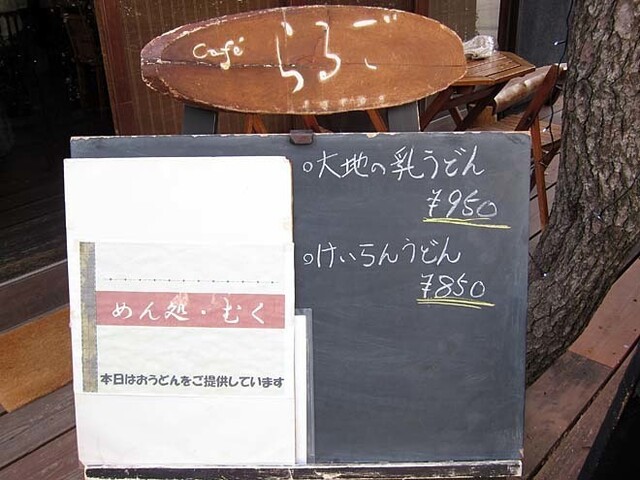 Café らるご
○大地の乳うどん
¥950
○けいらんうどん
¥850
めん処・むく
本日はおうどんをご提供しています